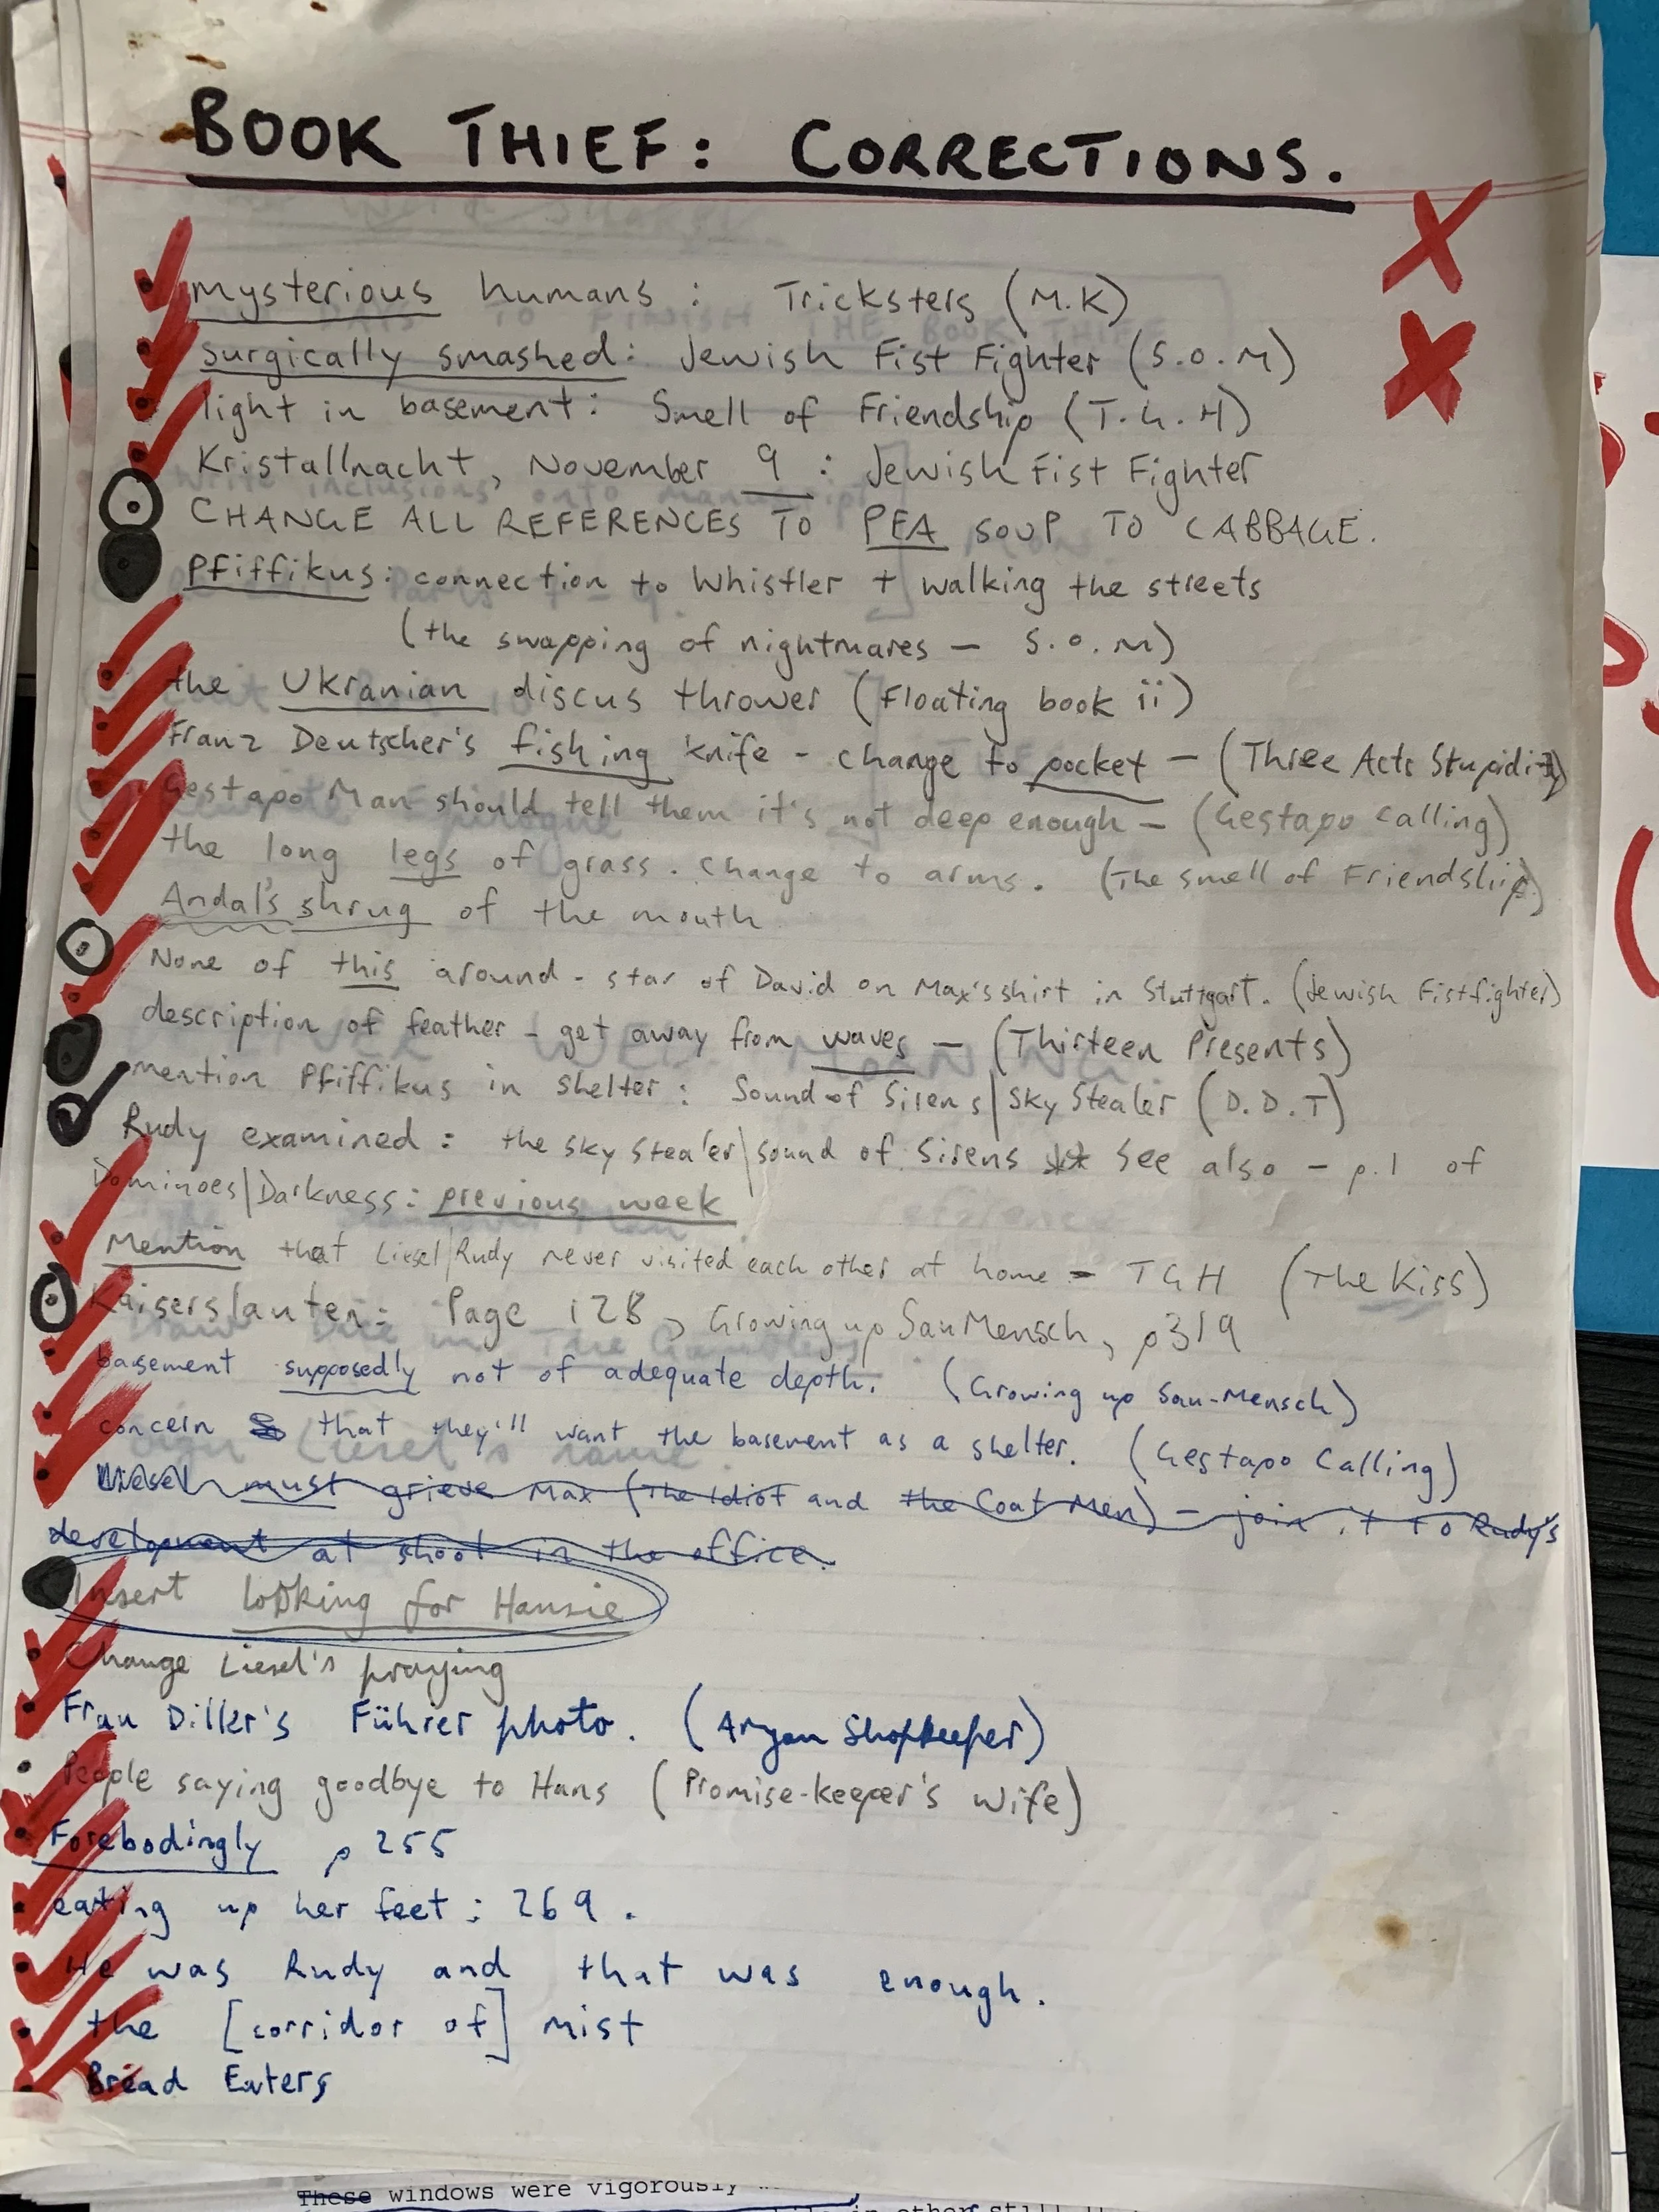 BOOK THIEF: CORRECTIONS.
mysterious humans: Tricksters (M.K)
surgically smashed: Jewish Fist Fighter (S.O.M)
light in basement: Smell of Friendship (T.G.H)
Kristallnacht, November 9: Jewish Fist Fighter
CHANGE ALL REFERENCES TO PEA SOUP TO CABBAGE.
Pfiffikus: connection to Whistler + walking the streets
(the swapping of nightmares - S.O.M)
the Ukranian discus thrower (Floating book ii)
Franz Deutscher's fishing knife - change to pocket - (Three Acts Stupidity)
Gestapo Man should tell them it's not deep enough - (Gestapo Calling)
the long legs of grass. change to arms. (The smell of Friendship)
Andal's shrug of the mouth
None of this around - star of David on Max's shirt in Stuttgart. (Jewish Fistfighter)
description of feather - get away from waves - (Thirteen Presents)
mention Pfiffikus in shelter: Sound of Sirens/Sky Stealer (D.D.T)
Rudy examined: the Sky Stealer/sound of Sirens ** See also - p.1 of
Dominoes/Darkness: previous week
Mention that Liesel/Rudy never visited each other at home - TGH (The Kiss)
Kaiserslauten: Page 128, Growing up SauMensch, p319
basement supposedly not of adequate depth. (Growing up Sau-Mensch)
concern that they'll want the basement as a shelter. (Gestapo Calling)
Liesel must grieve Max (The Idiot and the Coat Men) - join it to Rudy's
development at shoot in the office.
Insert looking for Hansie
Change Liesel's praying
Frau Diller's Führer photo. (Aryan Shopkeeper)
People saying goodbye to Hans (Promise-keeper's Wife)
Forebodingly p 255
eating up her feet: 269.
He was Rudy and that was enough.
the [corridor of] mist
Bread Eaters
These windows were vigorously